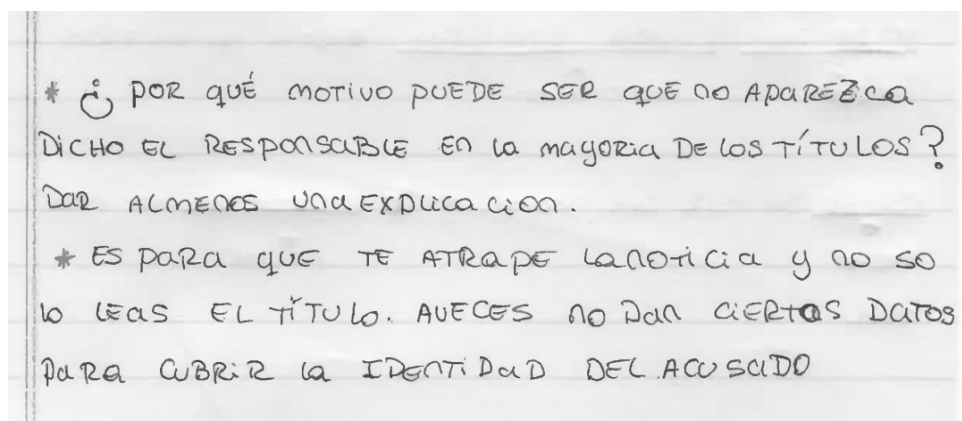 * ¿ POR QUÉ MOTIVO PUEDE SER QUE NO APAREZCA
DICHO EL RESPONSABLE EN LA MAYORIA DE LOS TÍTULOS?
DAR ALMENOS UNA EXPLICACION.
* ES PARA QUE TE ATRAPE LA NOTICIA Y NO SO
LO LEAS EL TÍTULO. AVECES NO DAN CIERTOS DATOS
PARA CUBRIR LA IDENTIDAD DEL ACUSADO